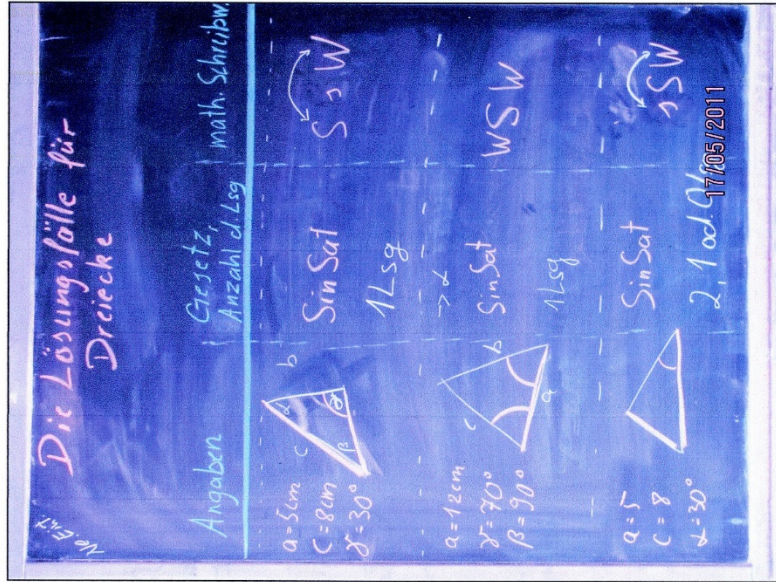 Die Lösungsfälle für
Dreiecke
Angaben
Gesetz,
Anzahl d. Lsg
math. Schreibw.
a=5cm
c=8cm
γ=30°
c
b
α
β
γ
SinSat
1Lsg
S s W
a=12cm
γ=70°
β=90°
c
b
a
->α
SinSat
1Lsg
WSW
a=5
c=8
α=30°
SinSat
2,1 od.
s S W
17/05/2011